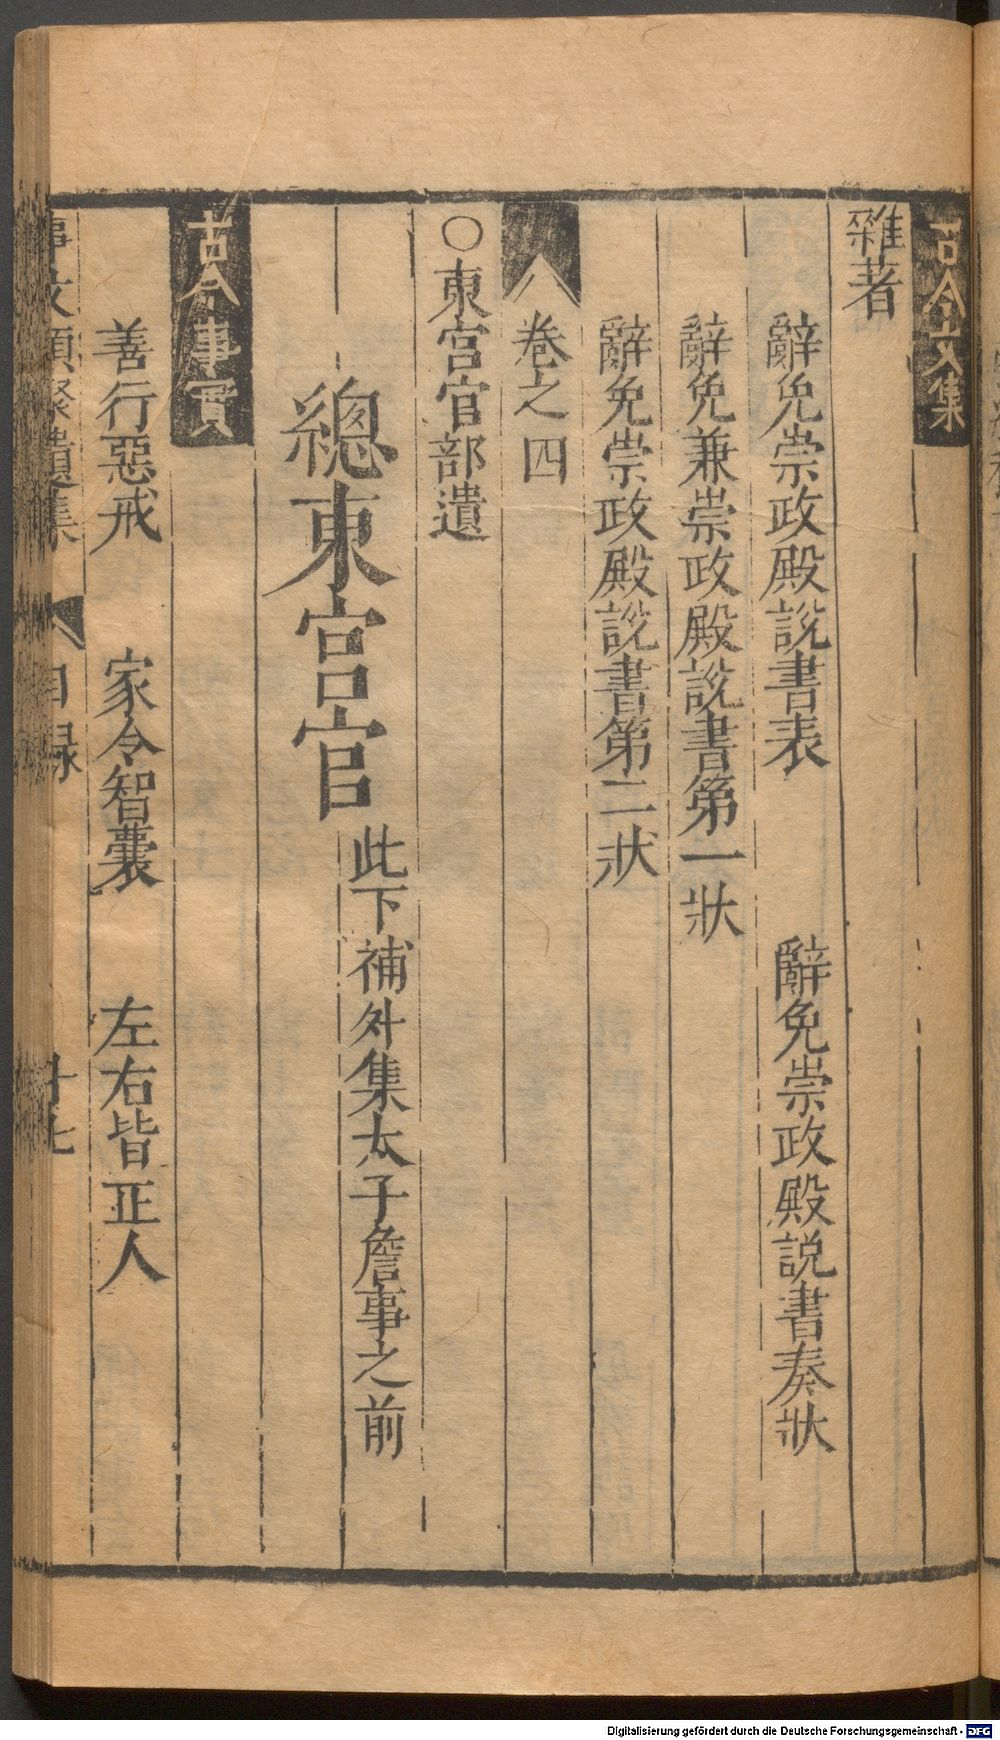 古今文集
雜著
辭免崇政殿說書表　辭免崇政殿說書奏狀
辭免兼崇政殿說書第一狀
辭免崇政殿說書第二狀
卷之四
○東宮官部遺
總東宮官 此下補外集太子詹事之前
古今事實
善行惡戒　家令智囊　左右皆正人
事文類聚遺集　目録　十七
Digitalisierung gefördert durch die Deutsche Forschungsgemeinschaft - DFG